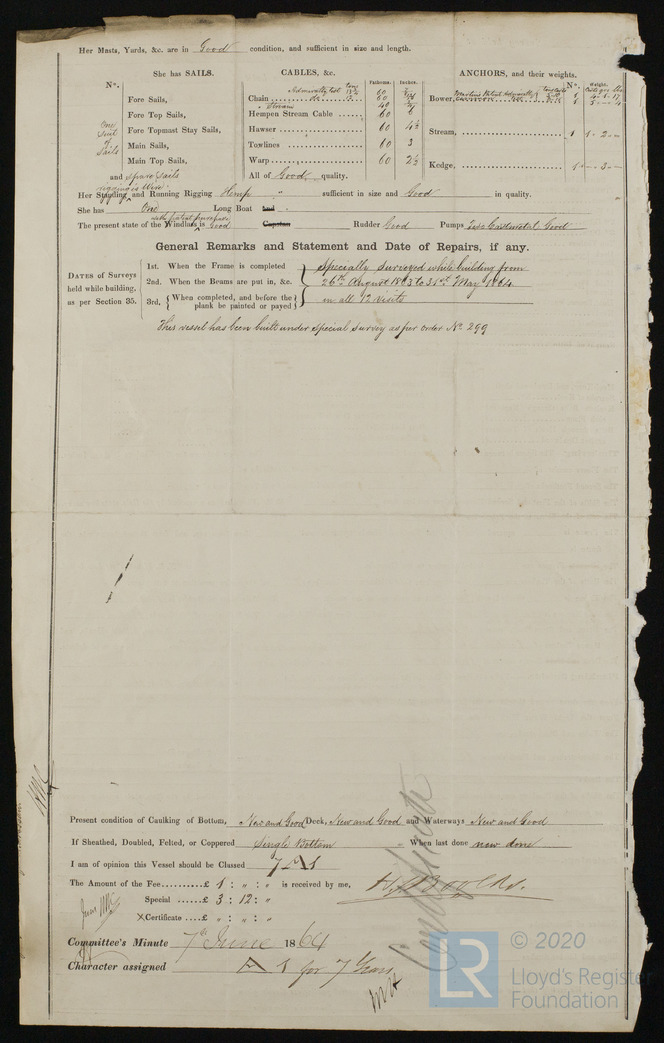 Her Masts, Yards, &c. are in Good condition, and sufficient in size and length.
She has SAILS.
CABLES, &c.
ANCHORS, and their weights.
No.
Fathoms. Inches.
No. Weight.
Fore Sails,
Fore Top Sails,
Fore Topmast Stay Sails,
Main Sails,
Main Top Sails,
One Suit of Sails
and spare sails
Admiralty test tons
Chain 60
Stream 40
Hempen Stream Cable 60 6
Hawser 60 4½
Towlines 60 3
Warp 60 2½
All of Good quality.
Bower,
Stream, 1 1 - 2 -
Kedge, 1 - 3 -
rigging is Wire
Her Standing and Running Rigging Hemp " sufficient in size and Good in quality.
She has One Long Boat and -
with patent purchase
The present state of the Windlass is Good Capstan Rudder Good Pumps Two Cast metal Good
General Remarks and Statement and Date of Repairs, if any.
DATES of Surveys held while building, as per Section 35.
1st. When the Frame is completed
2nd. When the Beams are put in, &c.
3rd. When completed, and before the plank be painted or payed
Specially surveyed while building from
26th August 1863 to 31st May 1864
in all 12 visits
This vessel has been built under Special Survey as per order No 299
Present condition of Caulking of Bottom, New and Good Deck, New and Good and Waterways New and Good
If Sheathed, Doubled, Felted, or Coppered Single Bottom " When last done new done
I am of opinion this Vessel should be Classed 7 A 1
The Amount of the Fee £ 1 : " : " is received by me,
Special £ 3 : 12 : "
Certificate £ " : " : "
Committee's Minute 7th June 1864
Character assigned A 1 for 7 Years
LR
© 2020
Lloyd's Register
Foundation